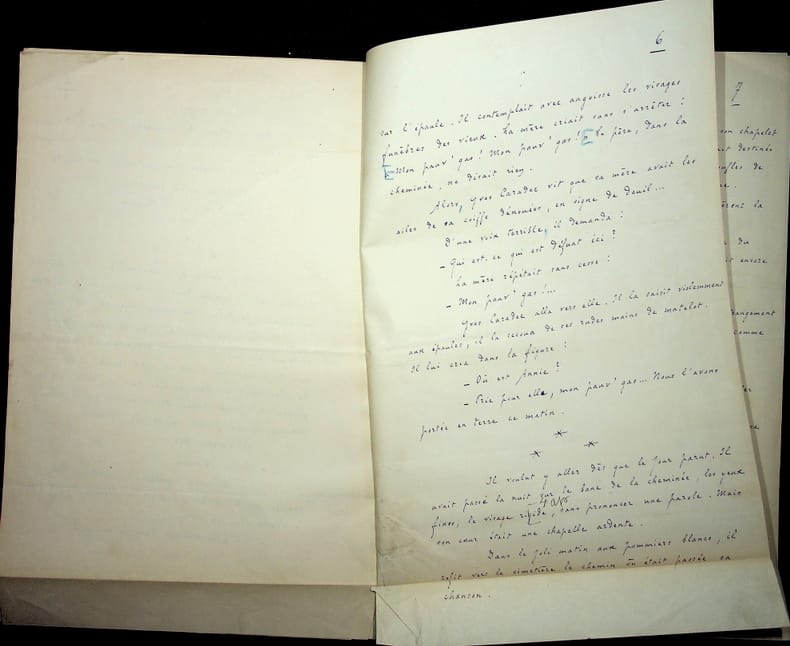 6
sur l'épaule. Il contemplait avec angoisse les visages
funèbres des vieux. La mère criait sans s'arrêter :
Mon pauv' gas ! Mon pauv' gas ! Le père, dans la
cheminée, ne disait rien.
Alors, Yves Caradec vit que sa mère avait les
ailes de sa coiffe dénouées, en signe de deuil...
D'une voix terrible, il demanda :
- Qui est-ce qui est défunt ici ?
La mère répétait sans cesse :
- Mon pauv' gas !...
Yves Caradec alla vers elle. Il la saisit violemment
aux épaules, il la secoua de ses rudes mains de matelot.
Il lui cria dans la figure :
- Où est Annie ?
- Prie pour elle, mon pauv' gas... Nous l'avons
portée en terre ce matin.
Il voulut y aller dès que le jour parut. Il
avait passé la nuit sur le banc de la cheminée, les yeux
fixes, le visage rigide, sans prononcer une parole. Mais
son cœur était une chapelle ardente.
Dans le joli matin aux pommiers blancs, il
refit vers le cimetière le chemin où était passée sa
chanson.
7
son chapelet
destinés
de
la
du
encore
comme